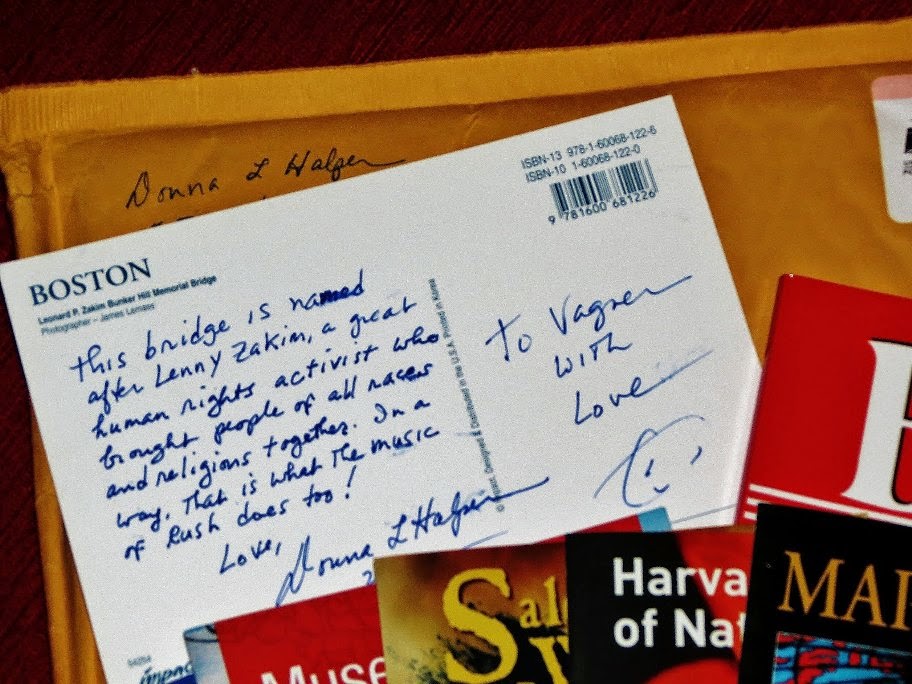 Donna L Halper
BOSTON
Leonard P. Zakim Bunker Hill Memorial Bridge
Photographer – James Lemass
ISBN-13 978-1-60068-122-6
ISBN-10 1-60068-122-0
9 781600 681226
This bridge is named
after Lenny Zakim, a great
human rights activist who
brought people of all races
and religions together. In a
way, That is what The music
of Rush does too!
Love,
Donna L Halper
Designed & Distributed in the U.S.A. Printed in Korea
To Vagner
with
Love
impac
Muse
Sal
W
Harva
of Nat
MAR